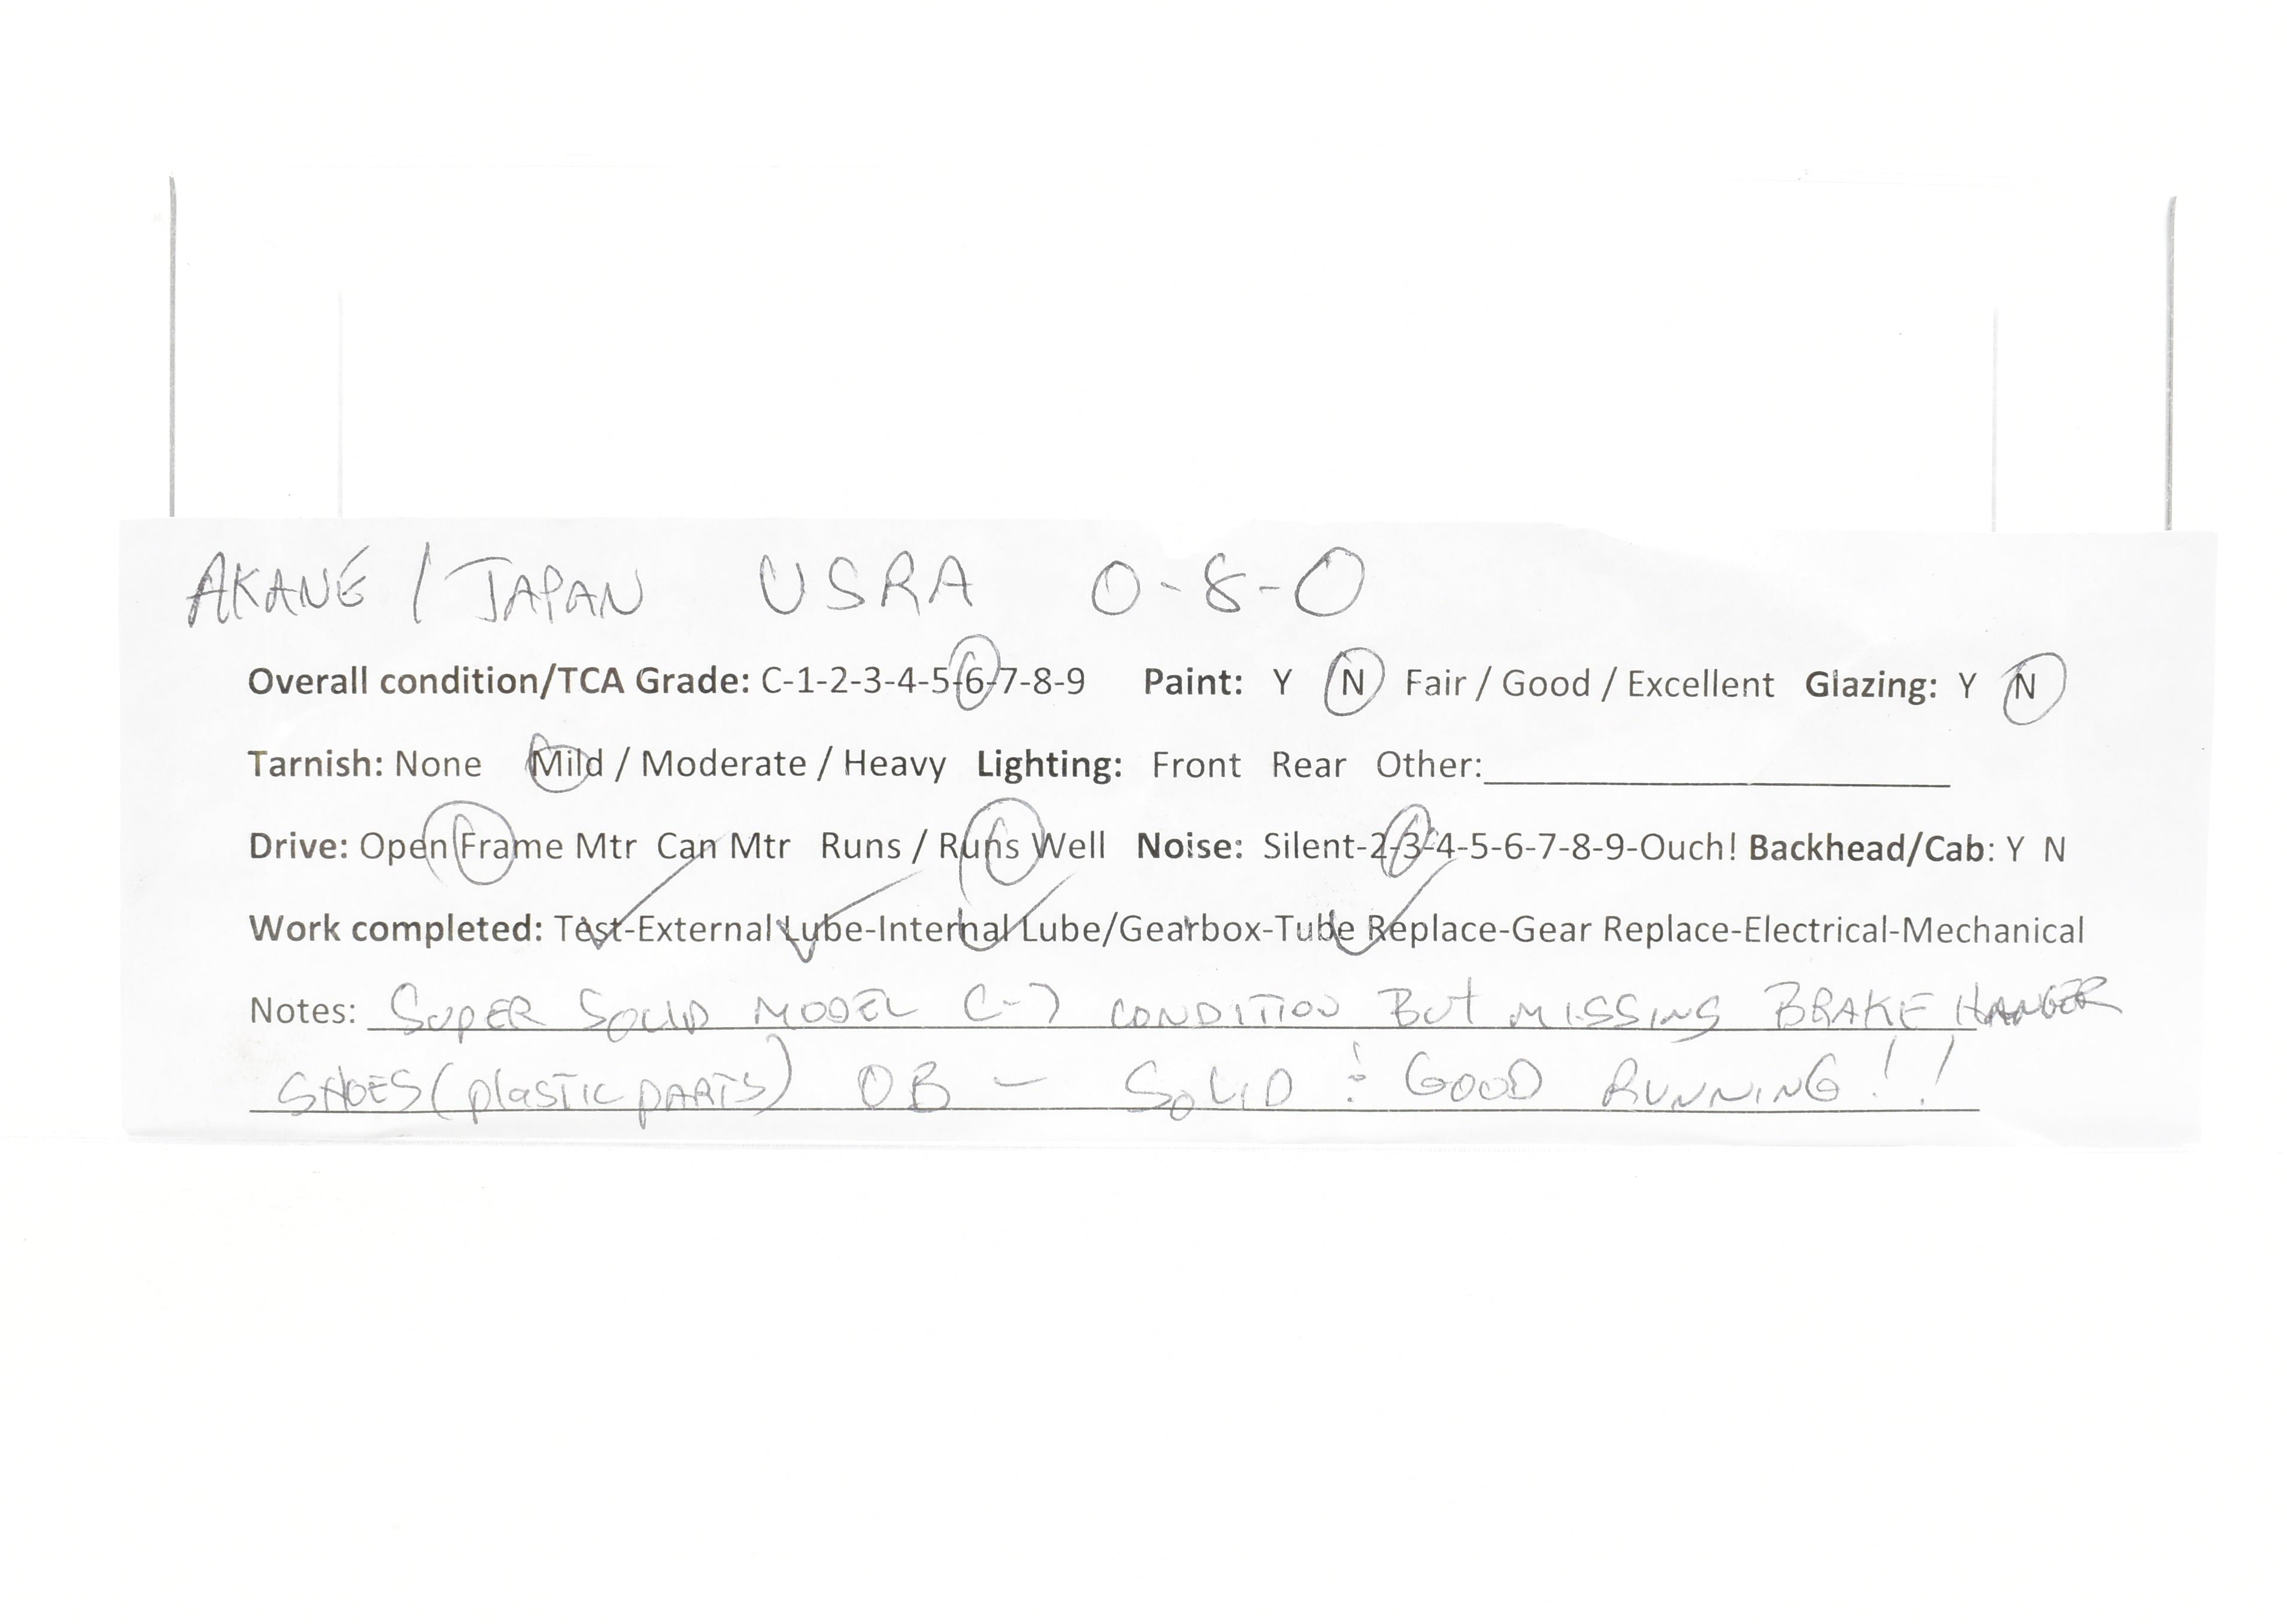 AKANE / JAPAN USRA 0-8-0
Overall condition/TCA Grade: C-1-2-3-4-5-6-7-8-9 Paint: Y N Fair / Good / Excellent Glazing: Y N
Tarnish: None Mild / Moderate / Heavy Lighting: Front Rear Other:
Drive: Open Frame Mtr Can Mtr Runs / Runs Well Noise: Silent-2-3-4-5-6-7-8-9-Ouch! Backhead/Cab: Y N
Work completed: Test-External Lube-Internal Lube/Gearbox-Tube Replace-Gear Replace-Electrical-Mechanical
Notes: SUPER SOLID MODEL C-7 CONDITION BUT MISSING BRAKE HANGER
SHOES (plastic PARTS) OB — SOLID & GOOD RUNNING!!